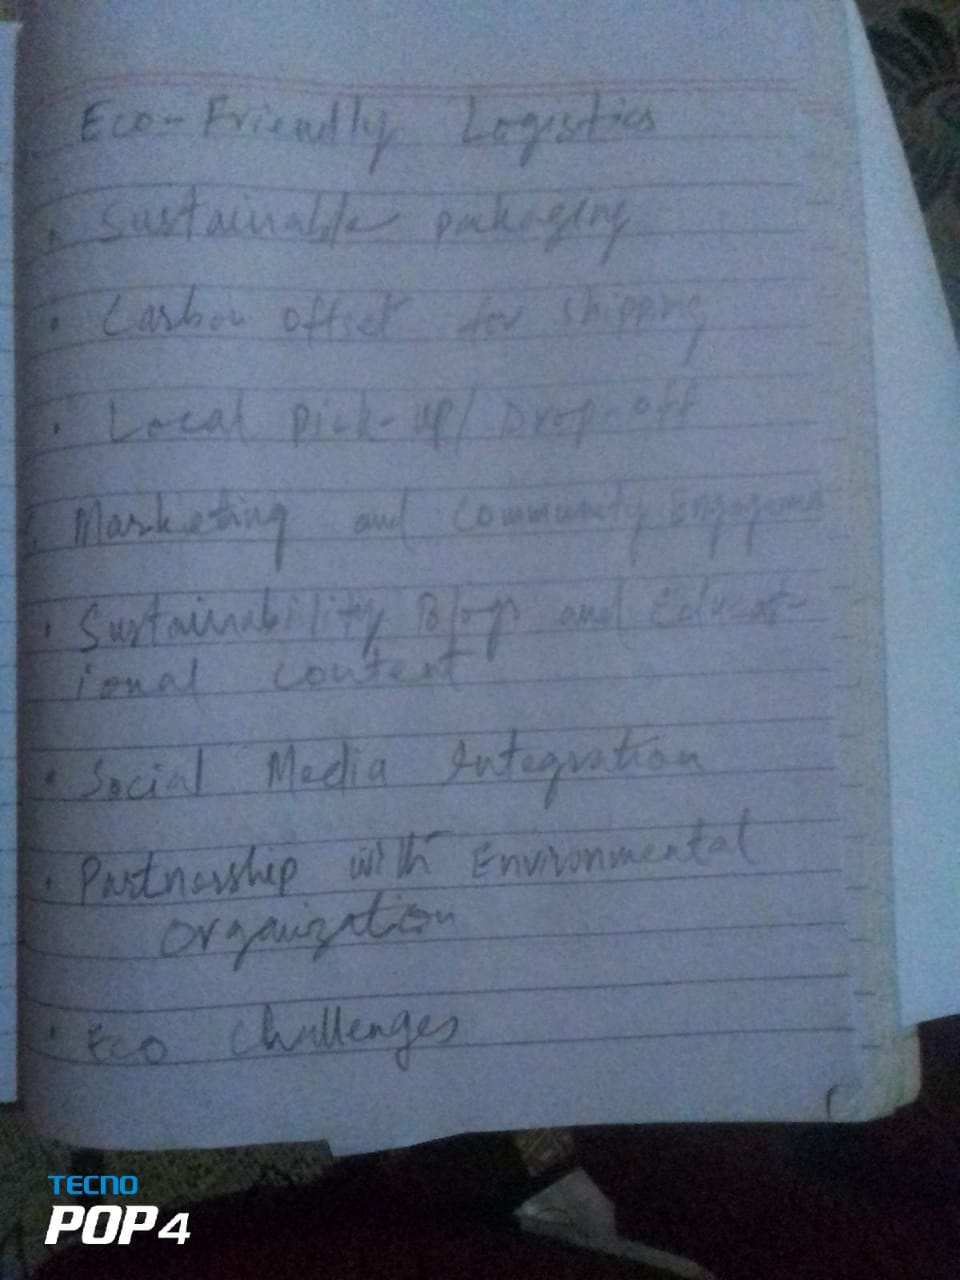 Eco-Friendly Logistics
• Sustainable packaging
• Carbon offset for shipping
• Local Pick-up/Drop-off
• Marketing and Community Engageme
• Sustainability Blogs and Educat-
ional content
• Social Media Integration
• Partnership with Environmental
Organization
• Eco Challenges
TECNO
POP 4